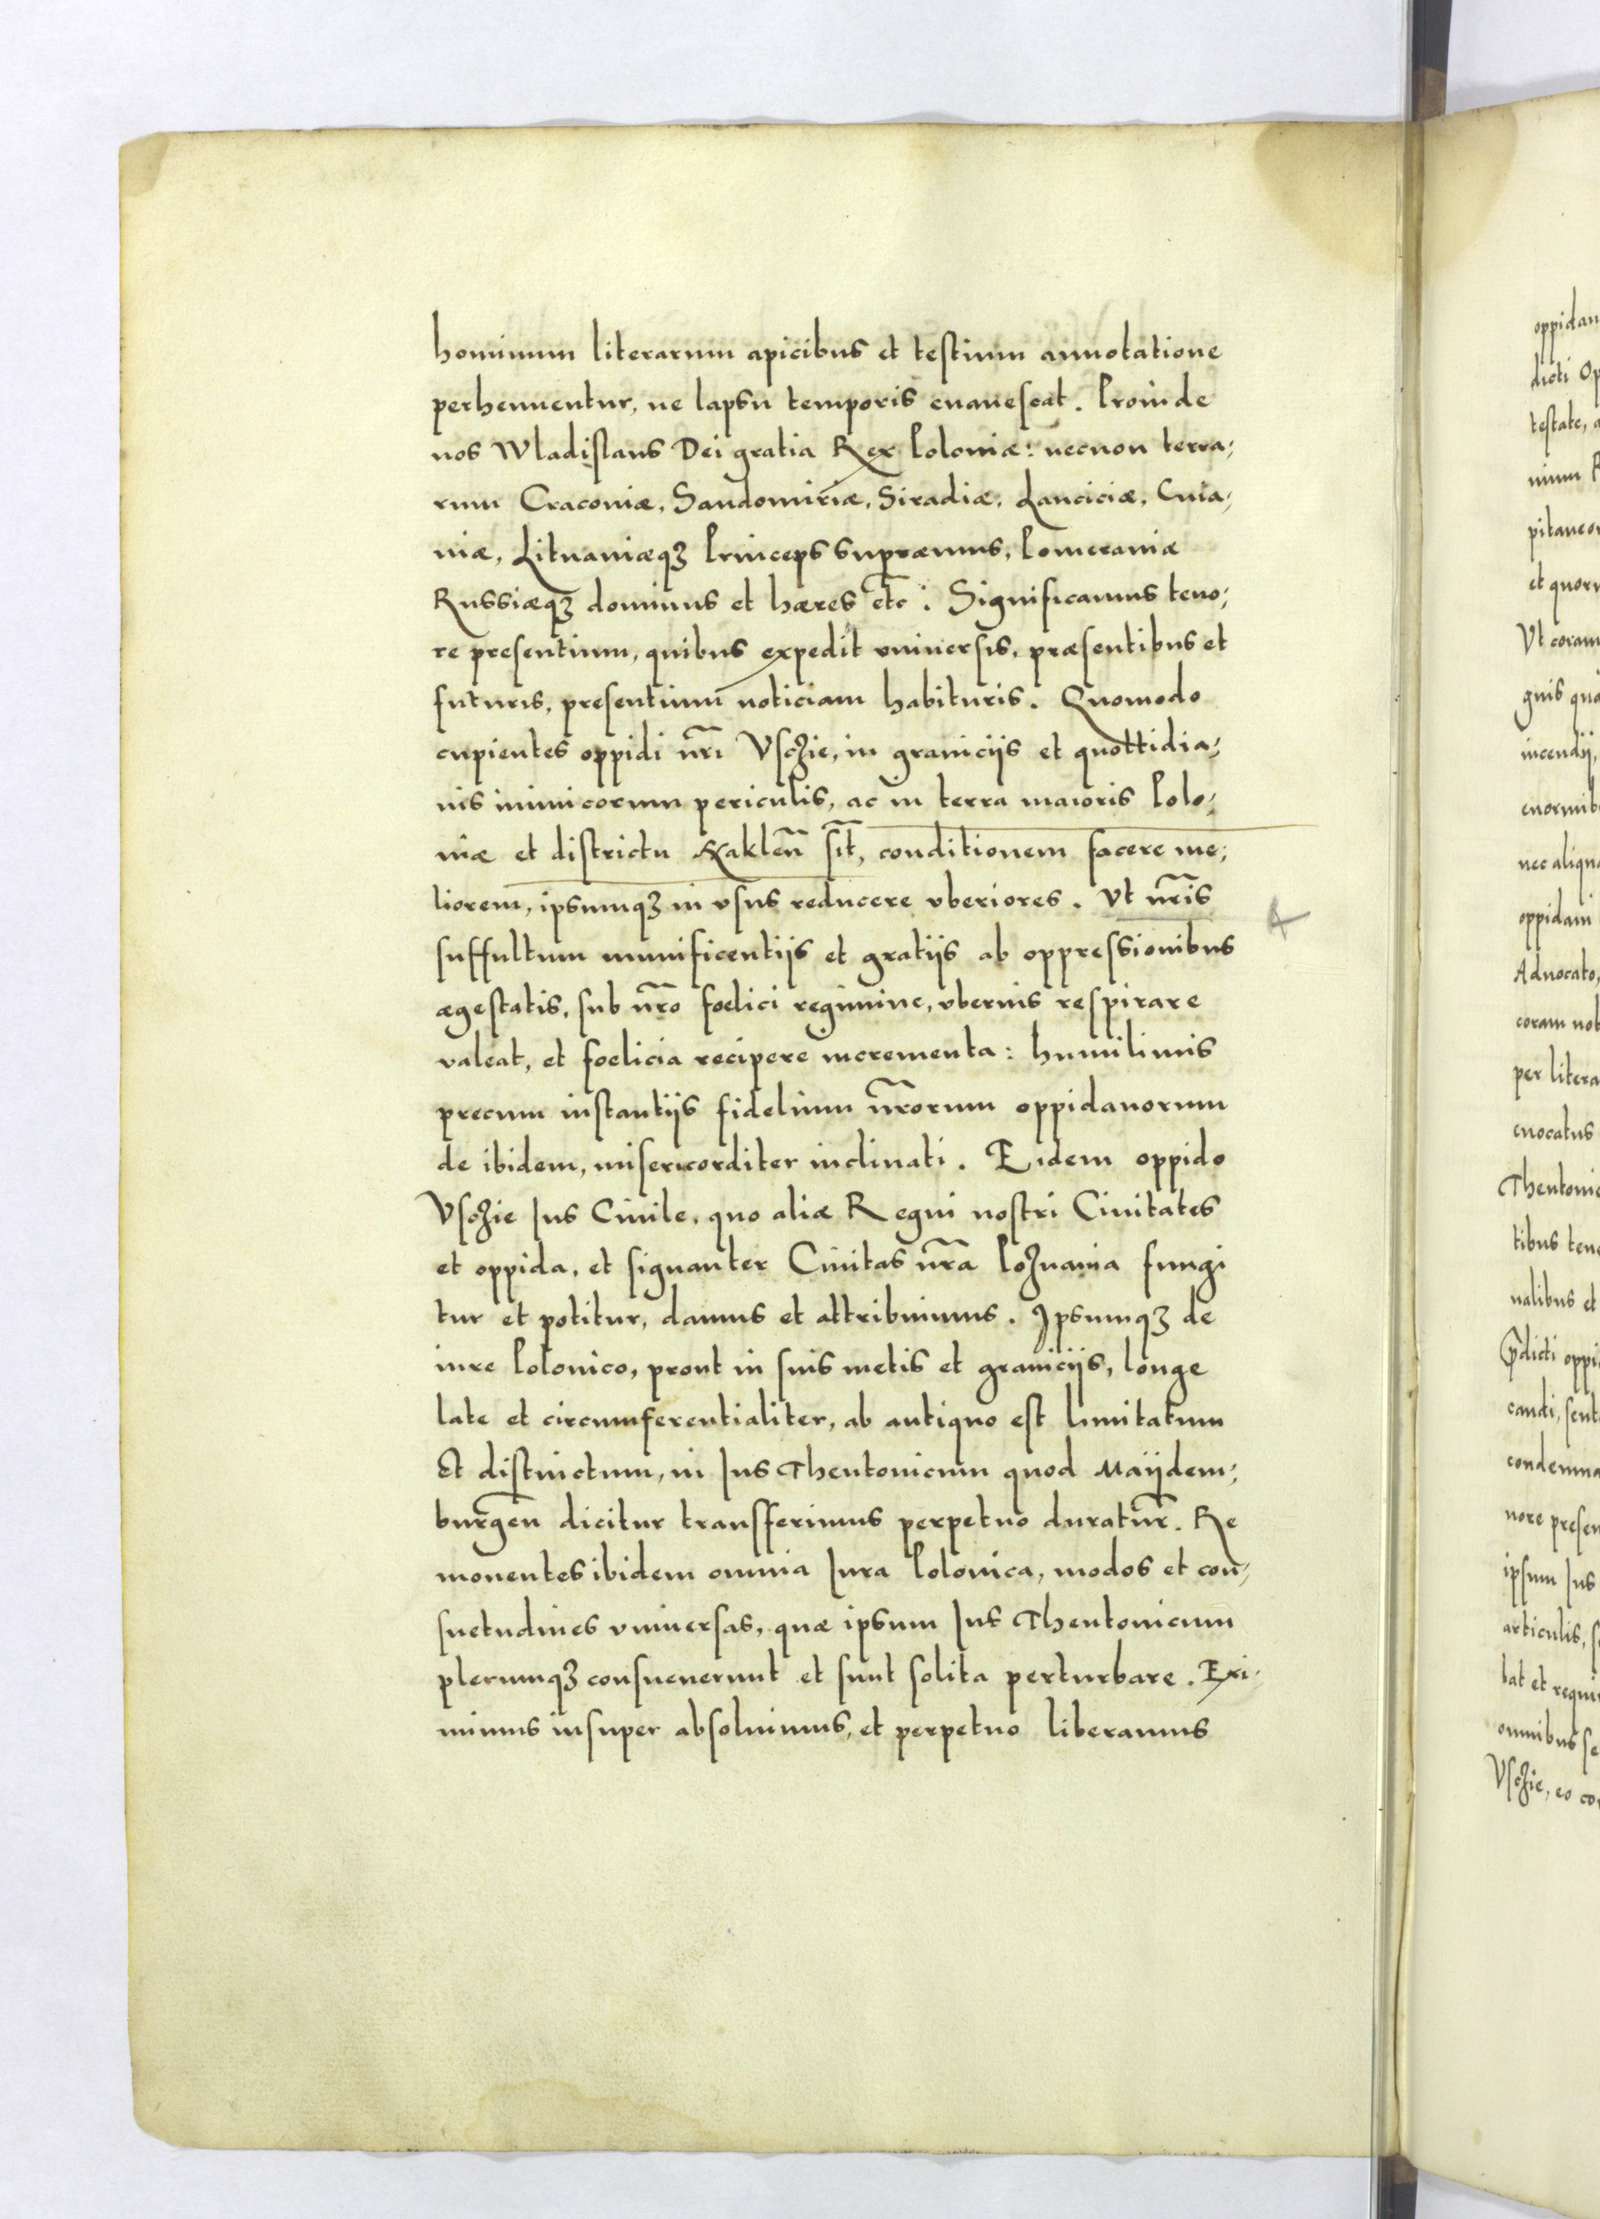 hominum literarum apicibus et testium annotatione
perhennentur, ne lapsu temporis euanescat. Proinde
nos Wladislaus Dei gratia Rex Poloniæ: necnon terra,
rum Craconiæ, Sandomiriæ, Siradiæ, Lanciciæ, Cuia,
niæ, Lituaniæqꝫ Princeps supræmus, Pomeraniæ
Russiæqꝫ dominus et hæres etc̃. Significamus teno,
re presentium, quibus expedit vniuersis, præsentibus et
futuris, presentium noticiam habituris. Quomodo
cupientes oppidi nr̃i Vschie, in graniciis et quottidia,
nis inimicorum periculis, ac in terra maioris Polo,
niæ et districtu Naklen̄ sit̄, conditionem facere me,
liorem, ipsumqꝫ in vsus reducere vberiores. Vt nr̃is
suffultum munificentijs et gratijs ab oppressionibus
ægestatis, sub nr̃o foelici regimine, vberius respirare
valeat, et foelicia recipere incrementa: humilimis
precum instantijs fidelium nr̃orum oppidanorum
de ibidem, misericorditer inclinati. Eidem oppido
Vschie Ius Ciuile, quo aliæ Regni nostri Ciuitates
et oppida, et signanter Ciuitas nr̃a Poznania fungi
tur et potitur, damus et attribuimus. Ipsumqꝫ de
iure Polonico, prout in suis metis et granicijs, longe
late et circumferentialiter, ab antiquo est limitatum
Et distinctum, in Ius Theutonicum quod Maijdem,
burgen̄ dicitur transferimus perpetuo duratur̄. Re
mouentes ibidem omnia Iura Polonica, modos et con,
suetudines vniuersas, quæ ipsum Ius Theutonicum
plerumqꝫ consueuerunt et sunt solita perturbare. Exi,
mimus insuper absoluimus, et perpetuo liberamus
oppidan
dicti Op
testate, a
minum
pitaneor
et quoru
Vt coram
guis qua
incendij,
enormib
nec aliqua
oppidani
Aduocato,
coram nob
per litera
euocatus
Theutonic
tibus tene
ualibus et
p̃dicti oppi
candi, sent
condemna
nore presen
ipsum Ius
articulis, s
bat et requi
omnibus se
Vschie, eo co